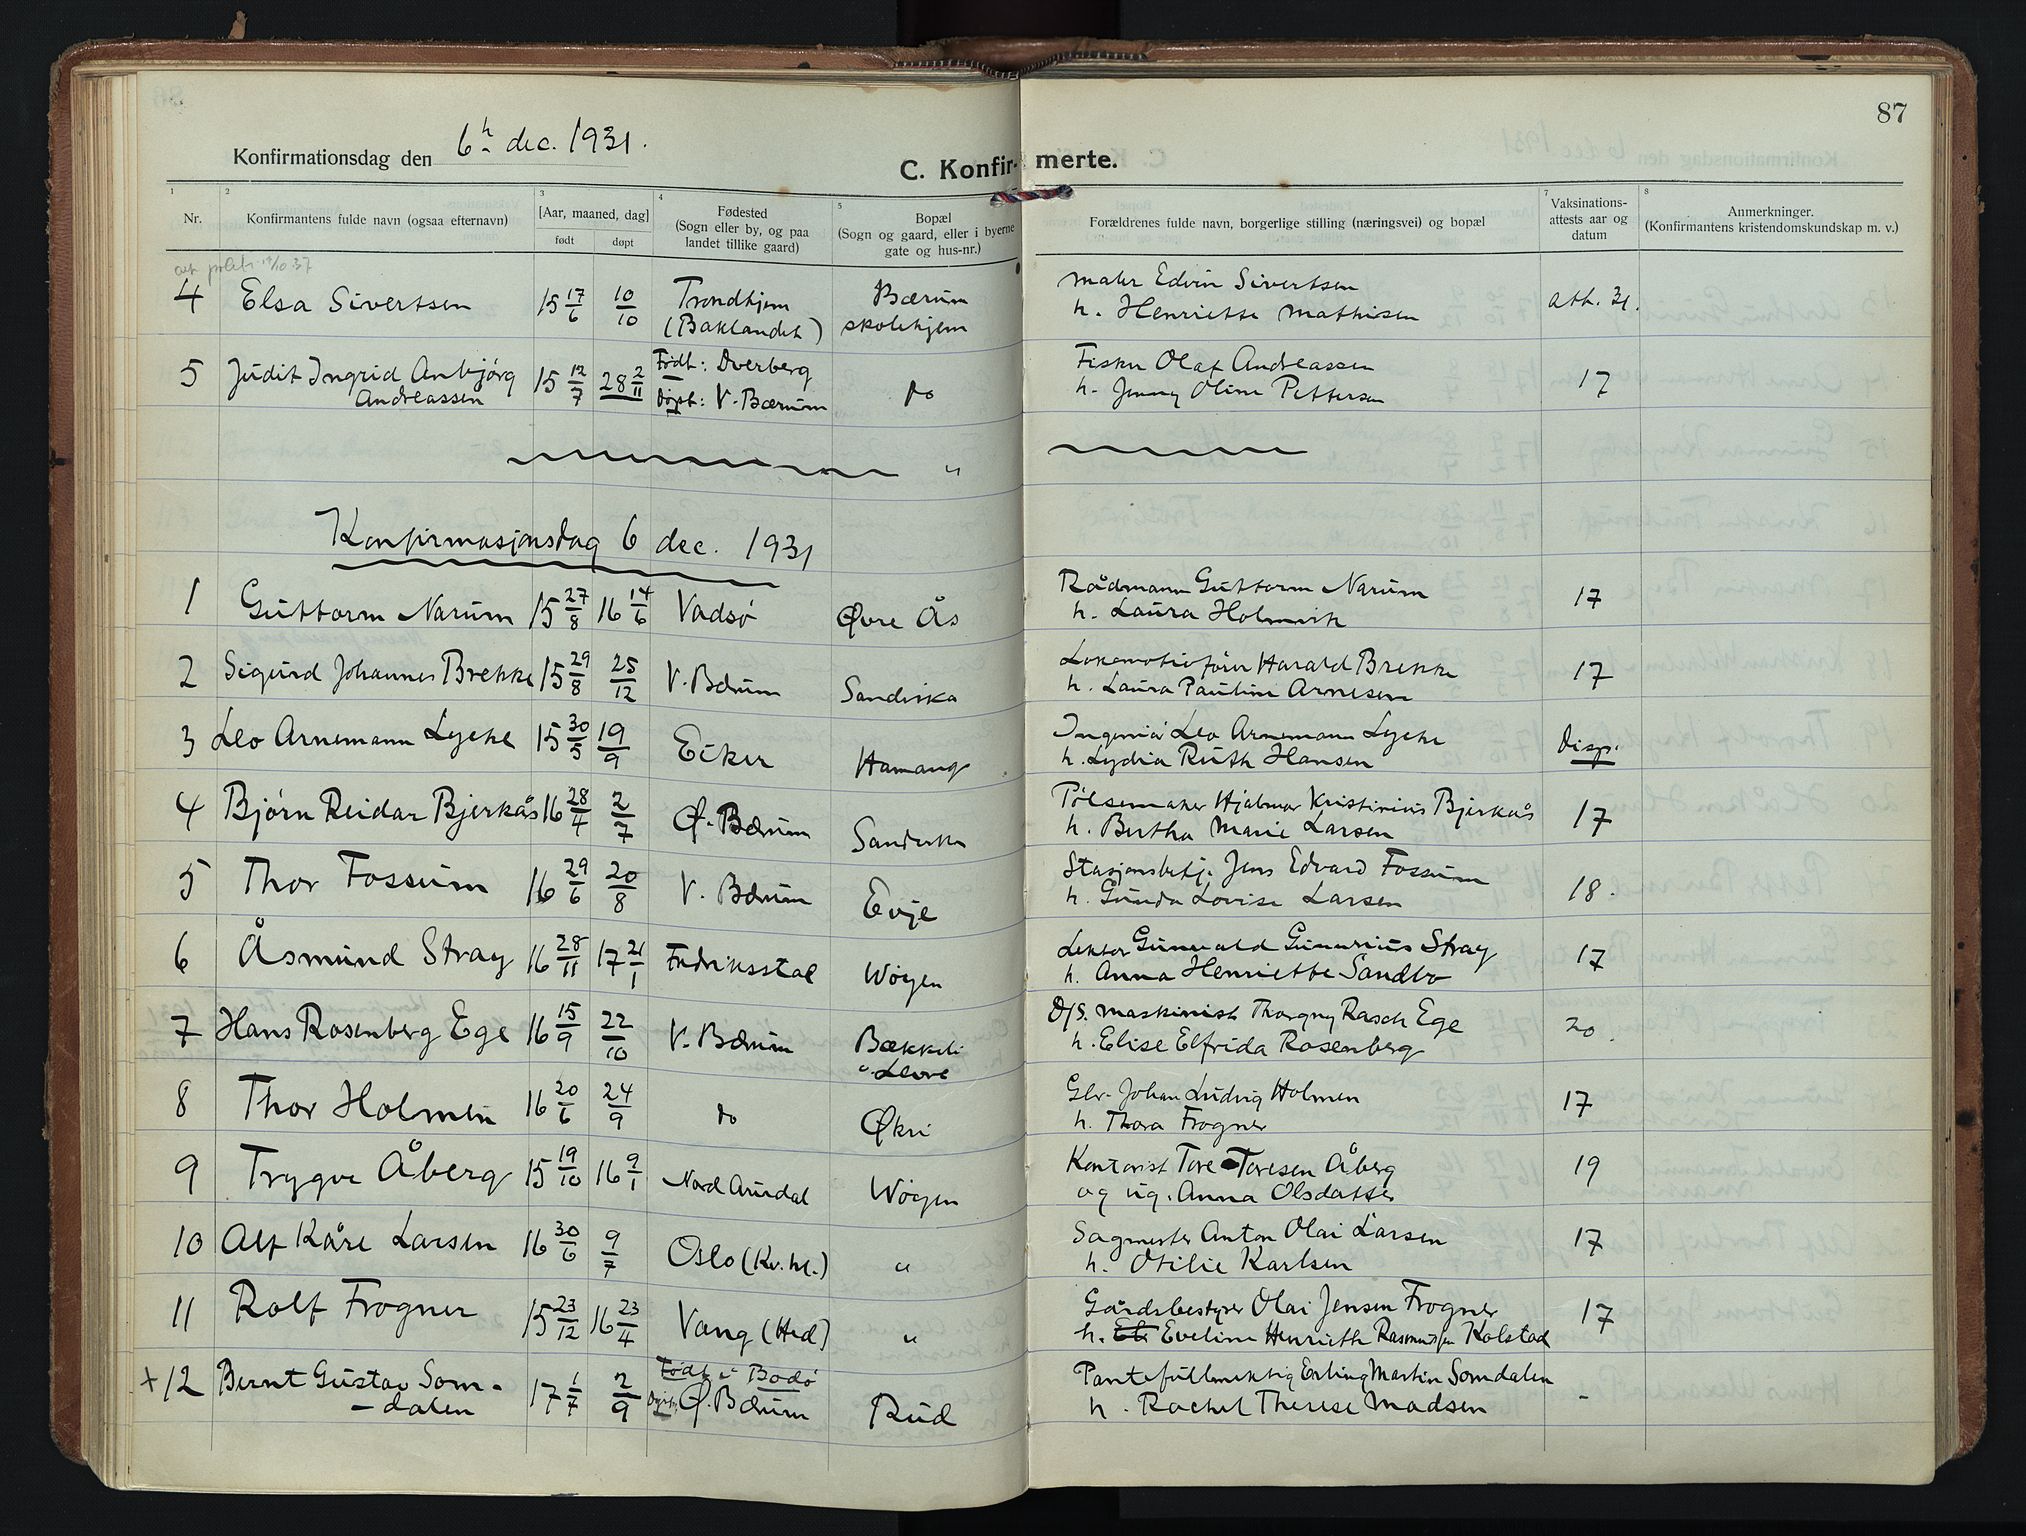 87
Konfirmationsdag den 6h dec. 1931.
C. Konfirmerte.
1 2 3 4 5 7 8
Nr. Konfirmantens fulde navn (ogsaa efternavn) [Aar, maaned, dag] født døpt Fødested (Sogn eller by, og paa landet tillike gaard) Bopæl (Sogn og gaard, eller i byerne gate og hus-nr.) Forældrenes fulde navn, borgerlige stilling (næringsvei) og bopæl Vaksinations-attests aar og datum Anmerkninger. (Konfirmantens kristendomskundskap m. v.)
4 Elsa Sivertsen 15 17/6 10/10 Trondhjem (Baklandet) Bærum skolehjem Maler Edvin Sivertsen
h. Henriette Mathisen att. 31.
5 Judit Ingrid Anbjørg Andreassen 15 12/7 28 2/11 Født: Dverberg Døpt: V. Bærum do Fisker Olaf Andreassen
h. Jenny Oline Pettersen 17
"
Konfirmasjonsdag 6 dec. 1931
1 Guttorm Narum 15 27/8 16 14/6 Vadsø Øvre Ås Rådmann Guttorm Narum
h. Laura Holmvik 17
2 Sigurd Johannes Brekke 15 29/8 25/12 V. Bærum Sandvika Lokomotivfører Harald Brekke
h. Laura Pauline Arnesen 17
3 Leo Arnemann Lycke 15 30/5 19/9 Eiker Hamang Ingeniør Leo Arnemann Lycke
h. Lydia Ruth Hansen Disp.
4 Bjørn Reidar Bjerkås 16 28/4 2/7 Ø. Bærum Sandvika Pølsemaker Hjalmar Kristinius Bjerkås
h. Bertha Marie Larsen 17
5 Thor Fossum 16 29/6 20/8 V. Bærum Evje Stasjonsbetj. Jens Edvard Fossum
h. Gunda Lovise Larsen 18.
6 Åsmund Stray 16 28/11 17 21/1 Fredriksstad Wøyen Lektor Gunvald Gunarius Stray
h. Anna Henriette Sandbo 17
7 Hans Rosenberg Ege 16 15/9 22/10 V. Bærum Bækkeli Levre D/S. maskinist Thorgny Rasch Ege
h. Elise Elfrida Rosenberg 20.
8 Thor Holmen 16 20/6 24/9 do Økri Gbr. Johan Ludvig Holmen
h. Thora Frogner 17
9 Trygve Åberg 15 19/10 16 9/1 Nord Aurdal Wøyen Kontorist Tore Toresen Åberg
og ug. Anna Olsdatter 19
10 Alf Kåre Larsen 16 30/6 9/7 Oslo (Kv. kl.) " Sagmester Anton Olai Larsen
h. Otilie Karlsen 17
11 Rolf Frogner 15 23/12 16 23/4 Vang (Hed) " Gårdsbestyrer Olai Jensen Frogner
h. Eveline Henriette Rasmussen Kolstad 17
+ 12 Bernt Gustav Som-
-dalen 17 1/7 2/9 Født i Bodø Døpt: Ø. Bærum Rud Pantefullmektig Erling Martin Somdalen
h. Rachel Therese Madsen -